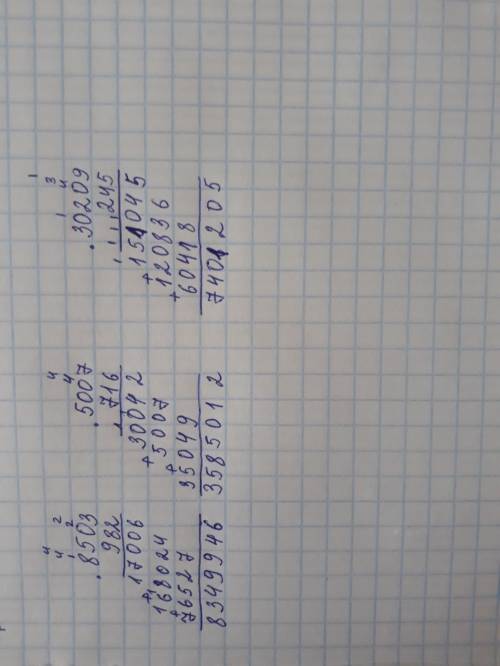 4 2
4 1 2
. 8503
982
17006
+ 168024
+ 76527
8349946
4
4
. 5007
716
30042
+ 5007
+ 35049
3585012
1
1 3 4
. 30209
245
1 1 1 1
151045
+ 120836
+ 60418
7401205